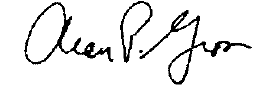 Alan P. Gross